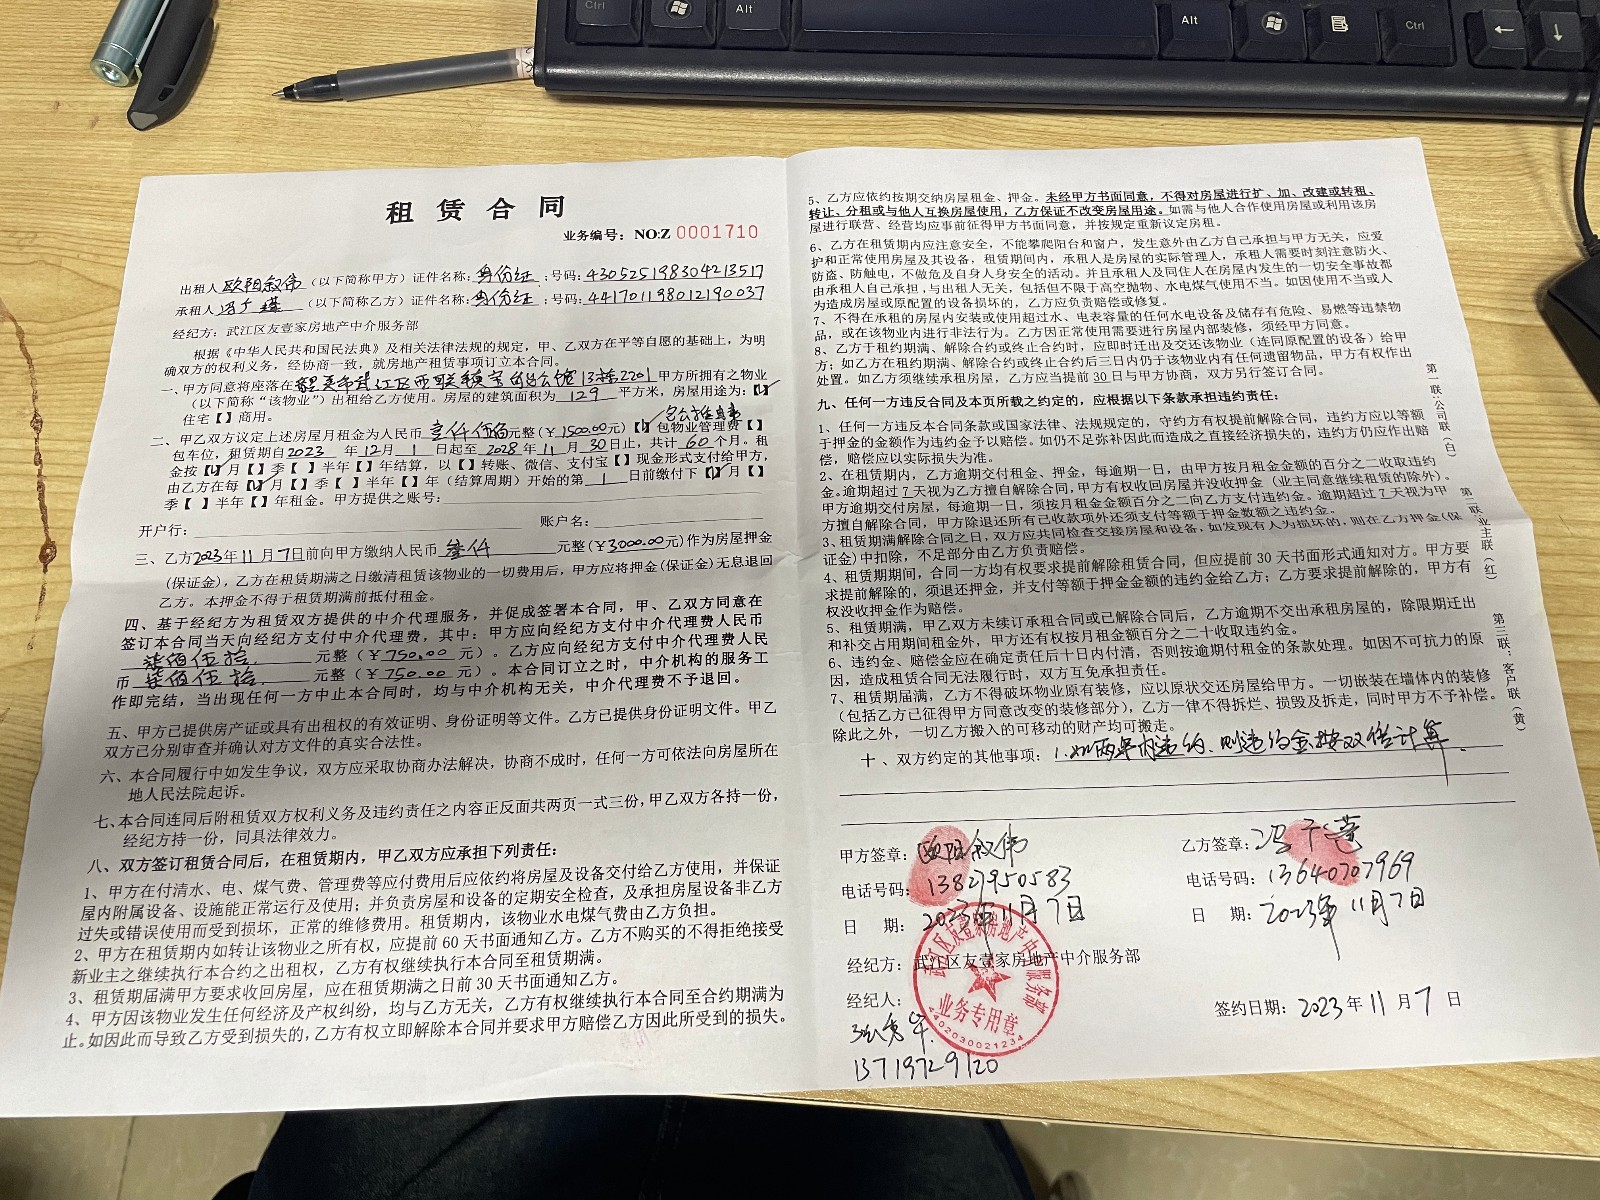 Ctrl
Alt
Alt
Ctrl
←
↓
租 赁 合 同
业务编号：NO:Z 0001710
出租人欧阳叙伟（以下简称甲方）证件名称：身份证；号码：430525198304213517
承租人（以下简称乙方）证件名称：身份证；号码：441701198012190037
经纪方：武江区友壹家房地产中介服务部
根据《中华人民共和国民法典》及相关法律法规的规定，甲、乙双方在平等自愿的基础上，为明
确双方的权利义务，经协商一致，就房地产租赁事项订立本合同。
一、甲方同意将座落在武江区西联13栋2201甲方所拥有之物业
（以下简称“该物业”）出租给乙方使用。房屋的建筑面积为 129 平方米，房屋用途为：【√】
住宅【 】商用。
二、甲乙双方议定上述房屋月租金为人民币 壹仟伍佰元整（￥1500.00元）【√】包物业管理费【 】
包车位，租赁期自2023 年12月 1 日起至2028年11月30日止，共计60个月。租
金按【√】月【 】季【 】半年【 】年结算，以【 】转账、微信、支付宝【 】现金形式支付给甲方，
由乙方在每【√】月【 】季【 】半年【 】年（结算周期）开始的第 1 日前缴付下【√】月【 】
季【 】半年【 】年租金。甲方提供之账号：
开户行： 账户名：
三、乙方2023年11月7日前向甲方缴纳人民币 叁仟 元整（￥3000.00元）作为房屋押金
（保证金），乙方在租赁期满之日缴清租赁该物业的一切费用后，甲方应将押金（保证金）无息退回
乙方。本押金不得于租赁期满前抵付租金。
四、基于经纪方为租赁双方提供的中介代理服务，并促成签署本合同，甲、乙双方同意在
签订本合同当天向经纪方支付中介代理费，其中：甲方应向经纪方支付中介代理费人民币
柒佰伍拾 元整（￥750.00 元）。乙方应向经纪方支付中介代理费人民
币 柒佰伍拾 元整（￥750.00 元）。本合同订立之时，中介机构的服务工
作即完结，当出现任何一方中止本合同时，均与中介机构无关，中介代理费不予退回。
五、甲方已提供房产证或具有出租权的有效证明、身份证明等文件。乙方已提供身份证明文件。甲乙
双方已分别审查并确认对方文件的真实合法性。
六、本合同履行中如发生争议，双方应采取协商办法解决，协商不成时，任何一方可依法向房屋所在
地人民法院起诉。
七、本合同连同后附租赁双方权利义务及违约责任之内容正反面共两页一式三份，甲乙双方各持一份，
经纪方持一份，同具法律效力。
八、双方签订租赁合同后，在租赁期内，甲乙双方应承担下列责任：
1、甲方在付清水、电、煤气费、管理费等应付费用后应依约将房屋及设备交付给乙方使用，并保证
屋内附属设备、设施能正常运行及使用；并负责房屋和设备的定期安全检查，及承担房屋设备非乙方
过失或错误使用而受到损坏，正常的维修费用。租赁期内，该物业水电煤气费由乙方负担。
2、甲方在租赁期内如转让该物业之所有权，应提前 60 天书面通知乙方。乙方不购买的不得拒绝接受
新业主之继续执行本合约之出租权，乙方有权继续执行本合同至租赁期满。
3、租赁期届满甲方要求收回房屋，应在租赁期满之日前 30 天书面通知乙方。
4、甲方因该物业发生任何经济及产权纠纷，均与乙方无关，乙方有权继续执行本合同至合约期满为
止。如因此而导致乙方受到损失的，乙方有权立即解除本合同并要求甲方赔偿乙方因此所受到的损失。
5、乙方应依约按期交纳房屋租金、押金。未经甲方书面同意，不得对房屋进行扩、加、改建或转租、
转让、分租或与他人互换房屋使用，乙方保证不改变房屋用途。如需与他人合作使用房屋或利用该房
屋进行联营、经营均应事前征得甲方书面同意，并按规定重新议定房租。
6、乙方在租赁期内应注意安全，不能攀爬阳台和窗户，发生意外由乙方自己承担与甲方无关，应爱
护和正常使用房屋及其设备，租赁期间内，承租人是房屋的实际管理人，承租人需要时刻注意防火、
防盗、防触电，不做危及自身人身安全的活动。并且承租人及同住人在房屋内发生的一切安全事故都
由承租人自己承担，与出租人无关，包括但不限于高空抛物、水电煤气使用不当。如因使用不当或人
为造成房屋或原配置的设备损坏的，乙方应负责赔偿或修复。
7、不得在承租的房屋内安装或使用超过水、电表容量的任何水电设备及储存有危险、易燃等违禁物
品，或在该物业内进行非法行为。乙方因正常使用需要进行房屋内部装修，须经甲方同意。
8、乙方于租约期满、解除合约或终止合约时，应即时迁出及交还该物业（连同原配置的设备）给甲
方；如乙方在租约期满、解除合约或终止合约后三日内仍于该物业内有任何遗留物品，甲方有权作出
处置。如乙方须继续承租房屋，乙方应当提前 30 日与甲方协商，双方另行签订合同。
九、任何一方违反合同及本页所载之约定的，应根据以下条款承担违约责任：
1、任何一方违反本合同条款或国家法律、法规规定的，守约方有权提前解除合同，违约方应以等额
于押金的金额作为违约金予以赔偿。如仍不足弥补因此而造成之直接经济损失的，违约方仍应作出赔
偿，赔偿应以实际损失为准。
2、在租赁期内，乙方逾期交付租金、押金，每逾期一日，由甲方按月租金金额的百分之二收取违约
金。逾期超过 7 天视为乙方擅自解除合同，甲方有权收回房屋并没收押金（业主同意继续租赁的除外）。
甲方逾期交付房屋，每逾期一日，须按月租金金额百分之二向乙方支付违约金。逾期超过 7 天视为甲
方擅自解除合同，甲方除退还所有已收款项外还须支付等额于押金数额之违约金。
3、租赁期满解除合同之日，双方应共同检查交接房屋和设备，如发现有人为损坏的，则在乙方押金（保
证金）中扣除，不足部分由乙方负责赔偿。
4、租赁期期间，合同一方均有权要求提前解除租赁合同，但应提前 30 天书面形式通知对方。甲方要
求提前解除的，须退还押金，并支付等额于押金金额的违约金给乙方；乙方要求提前解除的，甲方有
权没收押金作为赔偿。
5、租赁期满，甲乙双方未续订承租合同或已解除合同后，乙方逾期不交出承租房屋的，除限期迁出
和补交占用期间租金外，甲方还有权按月租金额百分之二十收取违约金。
6、违约金、赔偿金应在确定责任后十日内付清，否则按逾期付租金的条款处理。如因不可抗力的原
因，造成租赁合同无法履行时，双方互免承担责任。
7、租赁期届满，乙方不得破坏物业原有装修，应以原状交还房屋给甲方。一切嵌装在墙体内的装修
（包括乙方已征得甲方同意改变的装修部分），乙方一律不得拆烂、损毁及拆走，同时甲方不予补偿。
除此之外，一切乙方搬入的可移动的财产均可搬走。
十、双方约定的其他事项：1.如两年内违约，则违约金按双倍计算.
第一联：公司联（白）
第二联：业主联（红）
第三联：客户联（黄）
甲方签章：欧阳叙伟
电话号码：13827950583
日 期：2023年11月7日
乙方签章：
电话号码：13640707969
日 期：2023年11月7日
经纪方：武江区友壹家房地产中介服务部
经纪人：
13719729120
签约日期：2023年11月7日
武江区友壹家房地产中介服务部
业务专用章
4402030021234